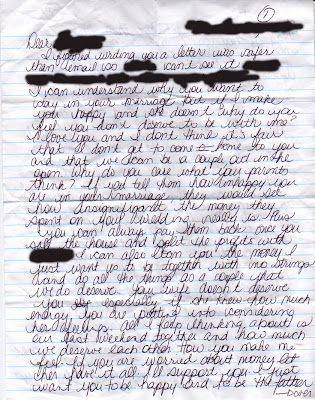 1
Dear
I figured writing you a letter was safer
than email too can't see it
I can understand why you want to
stay in your marriage but if I make
you happy and she doesn't why do you
feel you don't deserve to be with me?
I love you and I don't think it's fair
that I don't get to come home to you
and that we can be a couple out in the
open. Why do you care what your parents
think? If you tell them how unhappy you
are in your marriage they would see
how insignificant the money they
spent on your wedding really is. Plus
you can always pay them back once you
sell the house and split the profits with
I can also loan you the money. I
just want us to be together with no strings
and do all the things as a couple that
we do deserve. Your wife doesn't deserve
you especially if she knew how much
energy you are putting into considering
her feelings. All I keep thinking about is
our last weekend together and how much
we deserve each other. How you make me
feel. If you are worried about money let
her have it all. I'll support you. I just
want you to be happy and to be the father
over